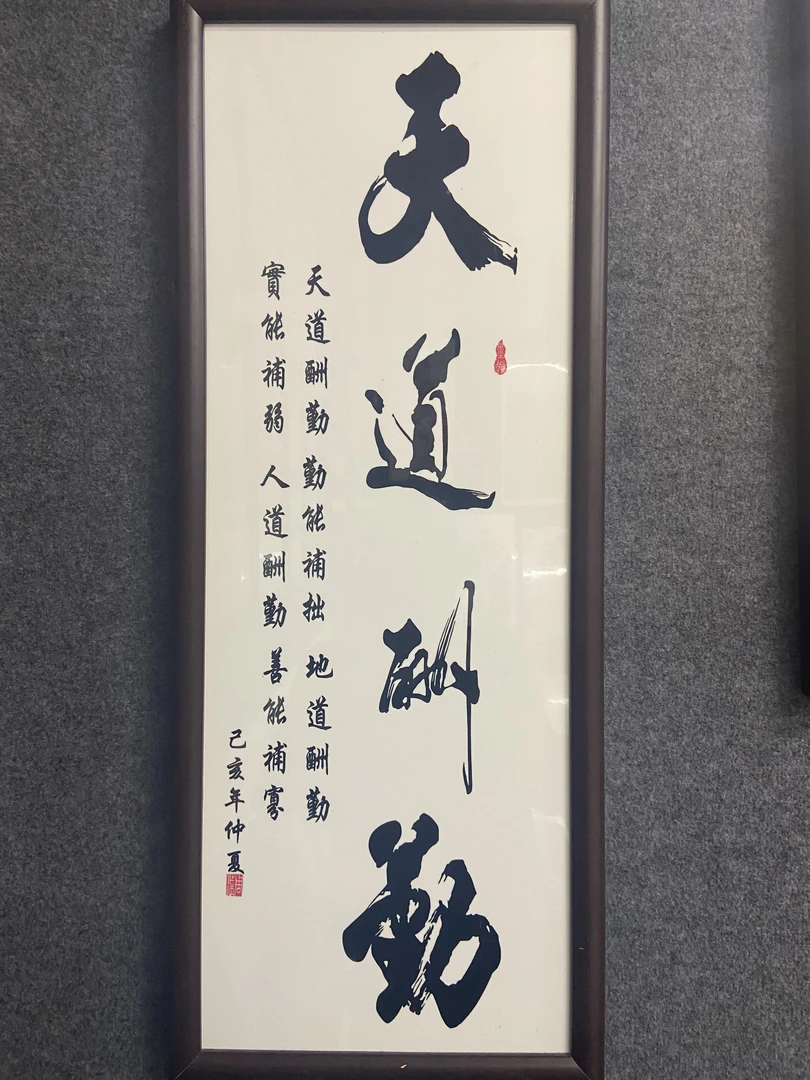 天道酬勤
天道酬勤 勤能補拙 地道酬勤
實能補弱 人道酬勤 善能補寡
己亥年仲夏